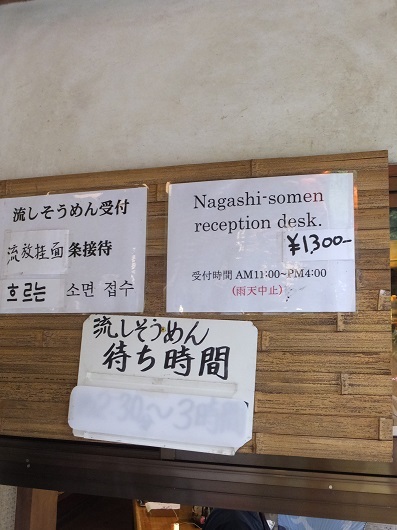 流しそうめん受付
流放挂面条接待
흐르는 소면 접수
Nagashi-somen
reception desk.
¥1,300-
受付時間 AM11:00~PM4:00
(雨天中止)
流しそうめん
待ち時間